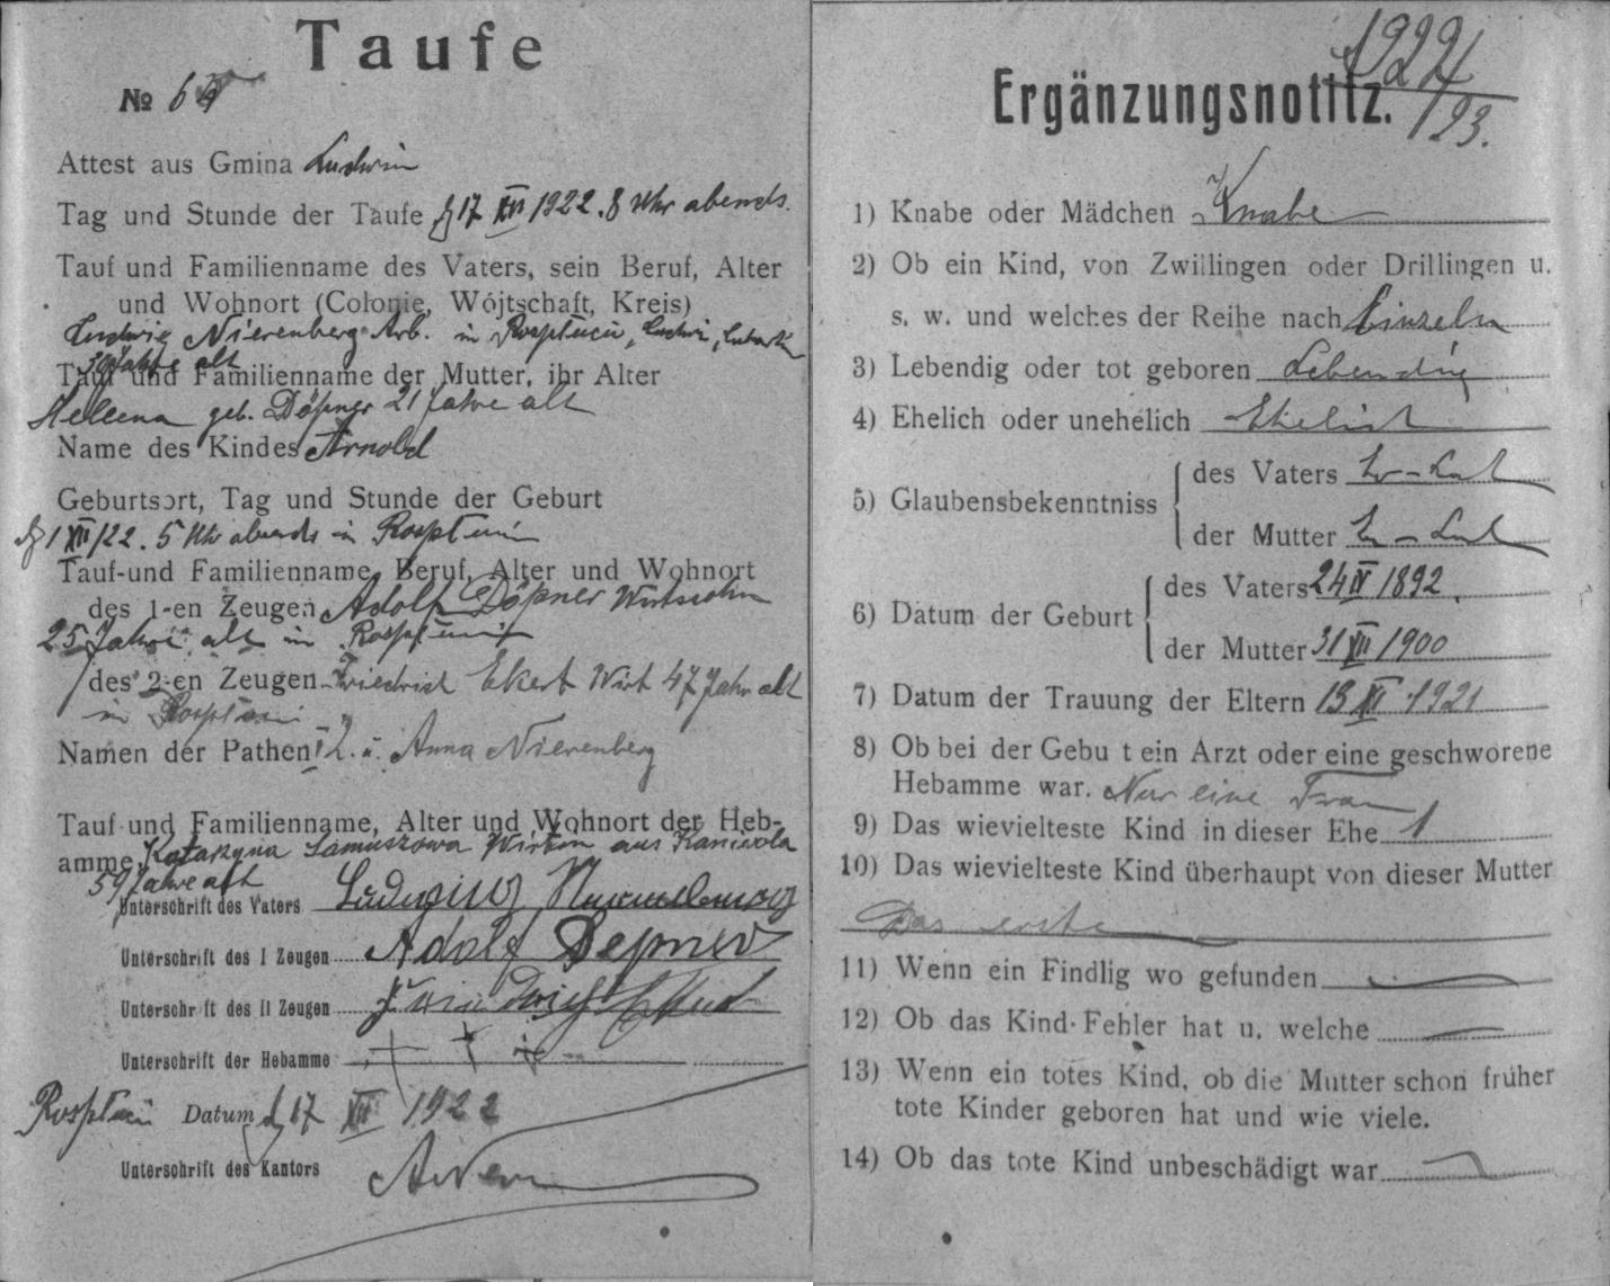 Taufe
№ 6
Attest aus Gmina Ludwin
Tag und Stunde der Taufe d 17 XII 1922. 8 Uhr abends.
Tauf und Familienname des Vaters, sein Beruf, Alter
und Wohnort (Colonie, Wójtschaft, Kreis)
Ludwig Nierenberg Arb. in Rosptuciu, Ludwi,
30 Jahre alt
Tauf und Familienname der Mutter, ihr Alter
Heleena geb. Döpner 21 Jahre alt
Name des Kindes Arnold
Geburtsort, Tag und Stunde der Geburt
d 1 XII/22. 5 Uhr abends in
Tauf-und Familienname, Beruf, Alter und Wohnort
des 1-en Zeugen Adolf Döpner Wirtssohn
25 Jahre alt in
des 2-en Zeugen Friedrich Ekert Wirt 47 Jahr alt
in
Namen der Pathen 1 2. u. Anna Nierenberg
Tauf und Familienname, Alter und Wohnort der Heb-
amme Katarzyna Samuszowa Wirtin aus Kaniwola
59 Jahre alt
Unterschrift des Vaters Ludwig
Unterschrift des I Zeugen Adolf Depner
Unterschr ft des II Zeugen
Unterschrift der Hebamme + + +
Datum d 17 XII 1922
Unterschrift des Kantors
1922/123.
Ergänzungsnotitz.
1) Knabe oder Mädchen Knabe
2) Ob ein Kind, von Zwillingen oder Drillingen u.
s. w. und welches der Reihe nach Einzeln
3) Lebendig oder tot geboren Lebendig
4) Ehelich oder unehelich Ehelich
5) Glaubensbekenntniss
des Vaters Ev-Lut
der Mutter Ev-Lut
6) Datum der Geburt
des Vaters 24 IV 1892.
der Mutter 31 XII 1900
7) Datum der Trauung der Eltern 13 XI 1921
8) Ob bei der Gebu t ein Arzt oder eine geschworene
Hebamme war. Nur eine Frau
9) Das wievielteste Kind in dieser Ehe 1
10) Das wievielteste Kind überhaupt von dieser Mutter
Das erste
11) Wenn ein Findlig wo gefunden
12) Ob das Kind Fehler hat u. welche
13) Wenn ein totes Kind, ob die Mutter schon früher
tote Kinder geboren hat und wie viele.
14) Ob das tote Kind unbeschädigt war